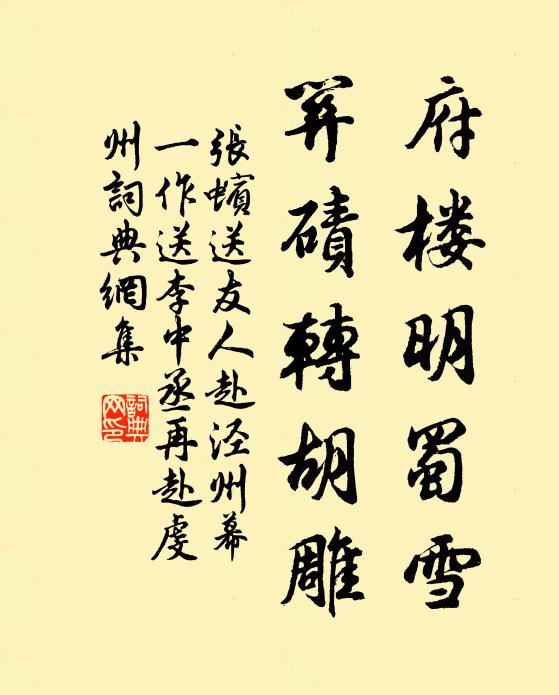 府楼明蜀雪
關磧轉胡雕
張蠙送友人赴泾州幕
一作送李中丞再赴虔
州詞典網集
詞典网印